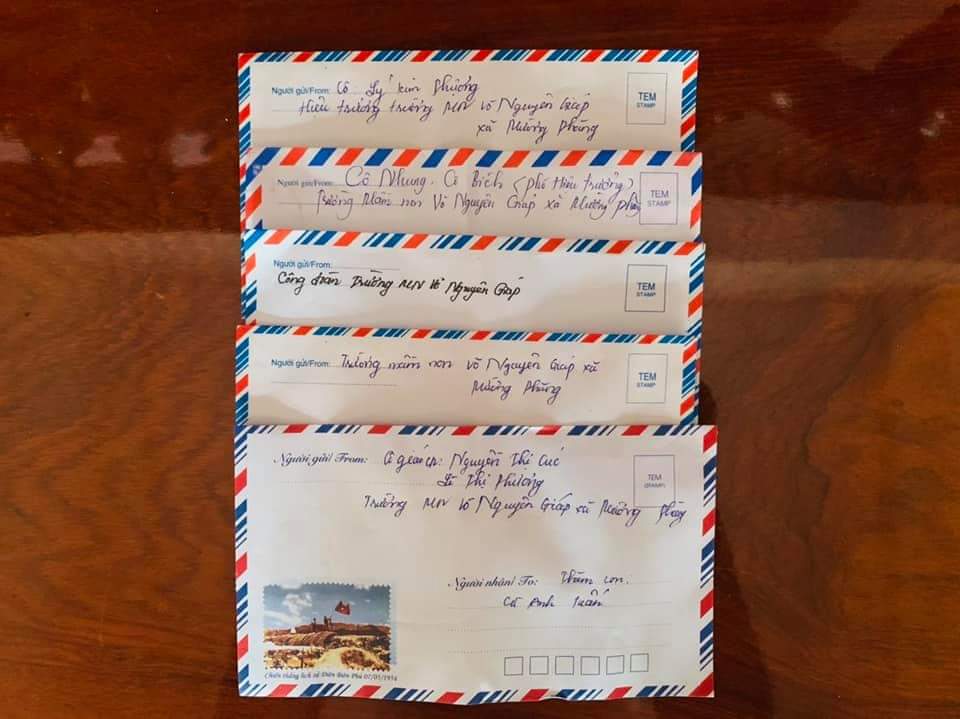 Người gửi/From: Cô Lý Kim Phượng
Hiệu trưởng trường MN Võ Nguyên Giáp
xã Mường Phăng
TEM
STAMP
Người gửi/From: Cô Nhung, Cô Bích (phó hiệu trưởng)
Trường Mầm non Võ Nguyên Giáp xã Mường Phăng
TEM
STAMP
Người gửi/From:
Công đoàn Trường MN Võ Nguyên Giáp
TEM
STAMP
Người gửi/From: Trường mầm non Võ Nguyên Giáp xã
Mường Phăng
TEM
STAMP
Người gửi/ From: Nguyễn Thị Cúc
Thị Phượng
Trường MN Võ Nguyên Giáp xã Mường Phăng
TEM
(STAMP)
Người nhận/ To: Thăm con
Anh Tuấn
Chiến thắng lịch sử Điện Biên Phủ 07/05/1954